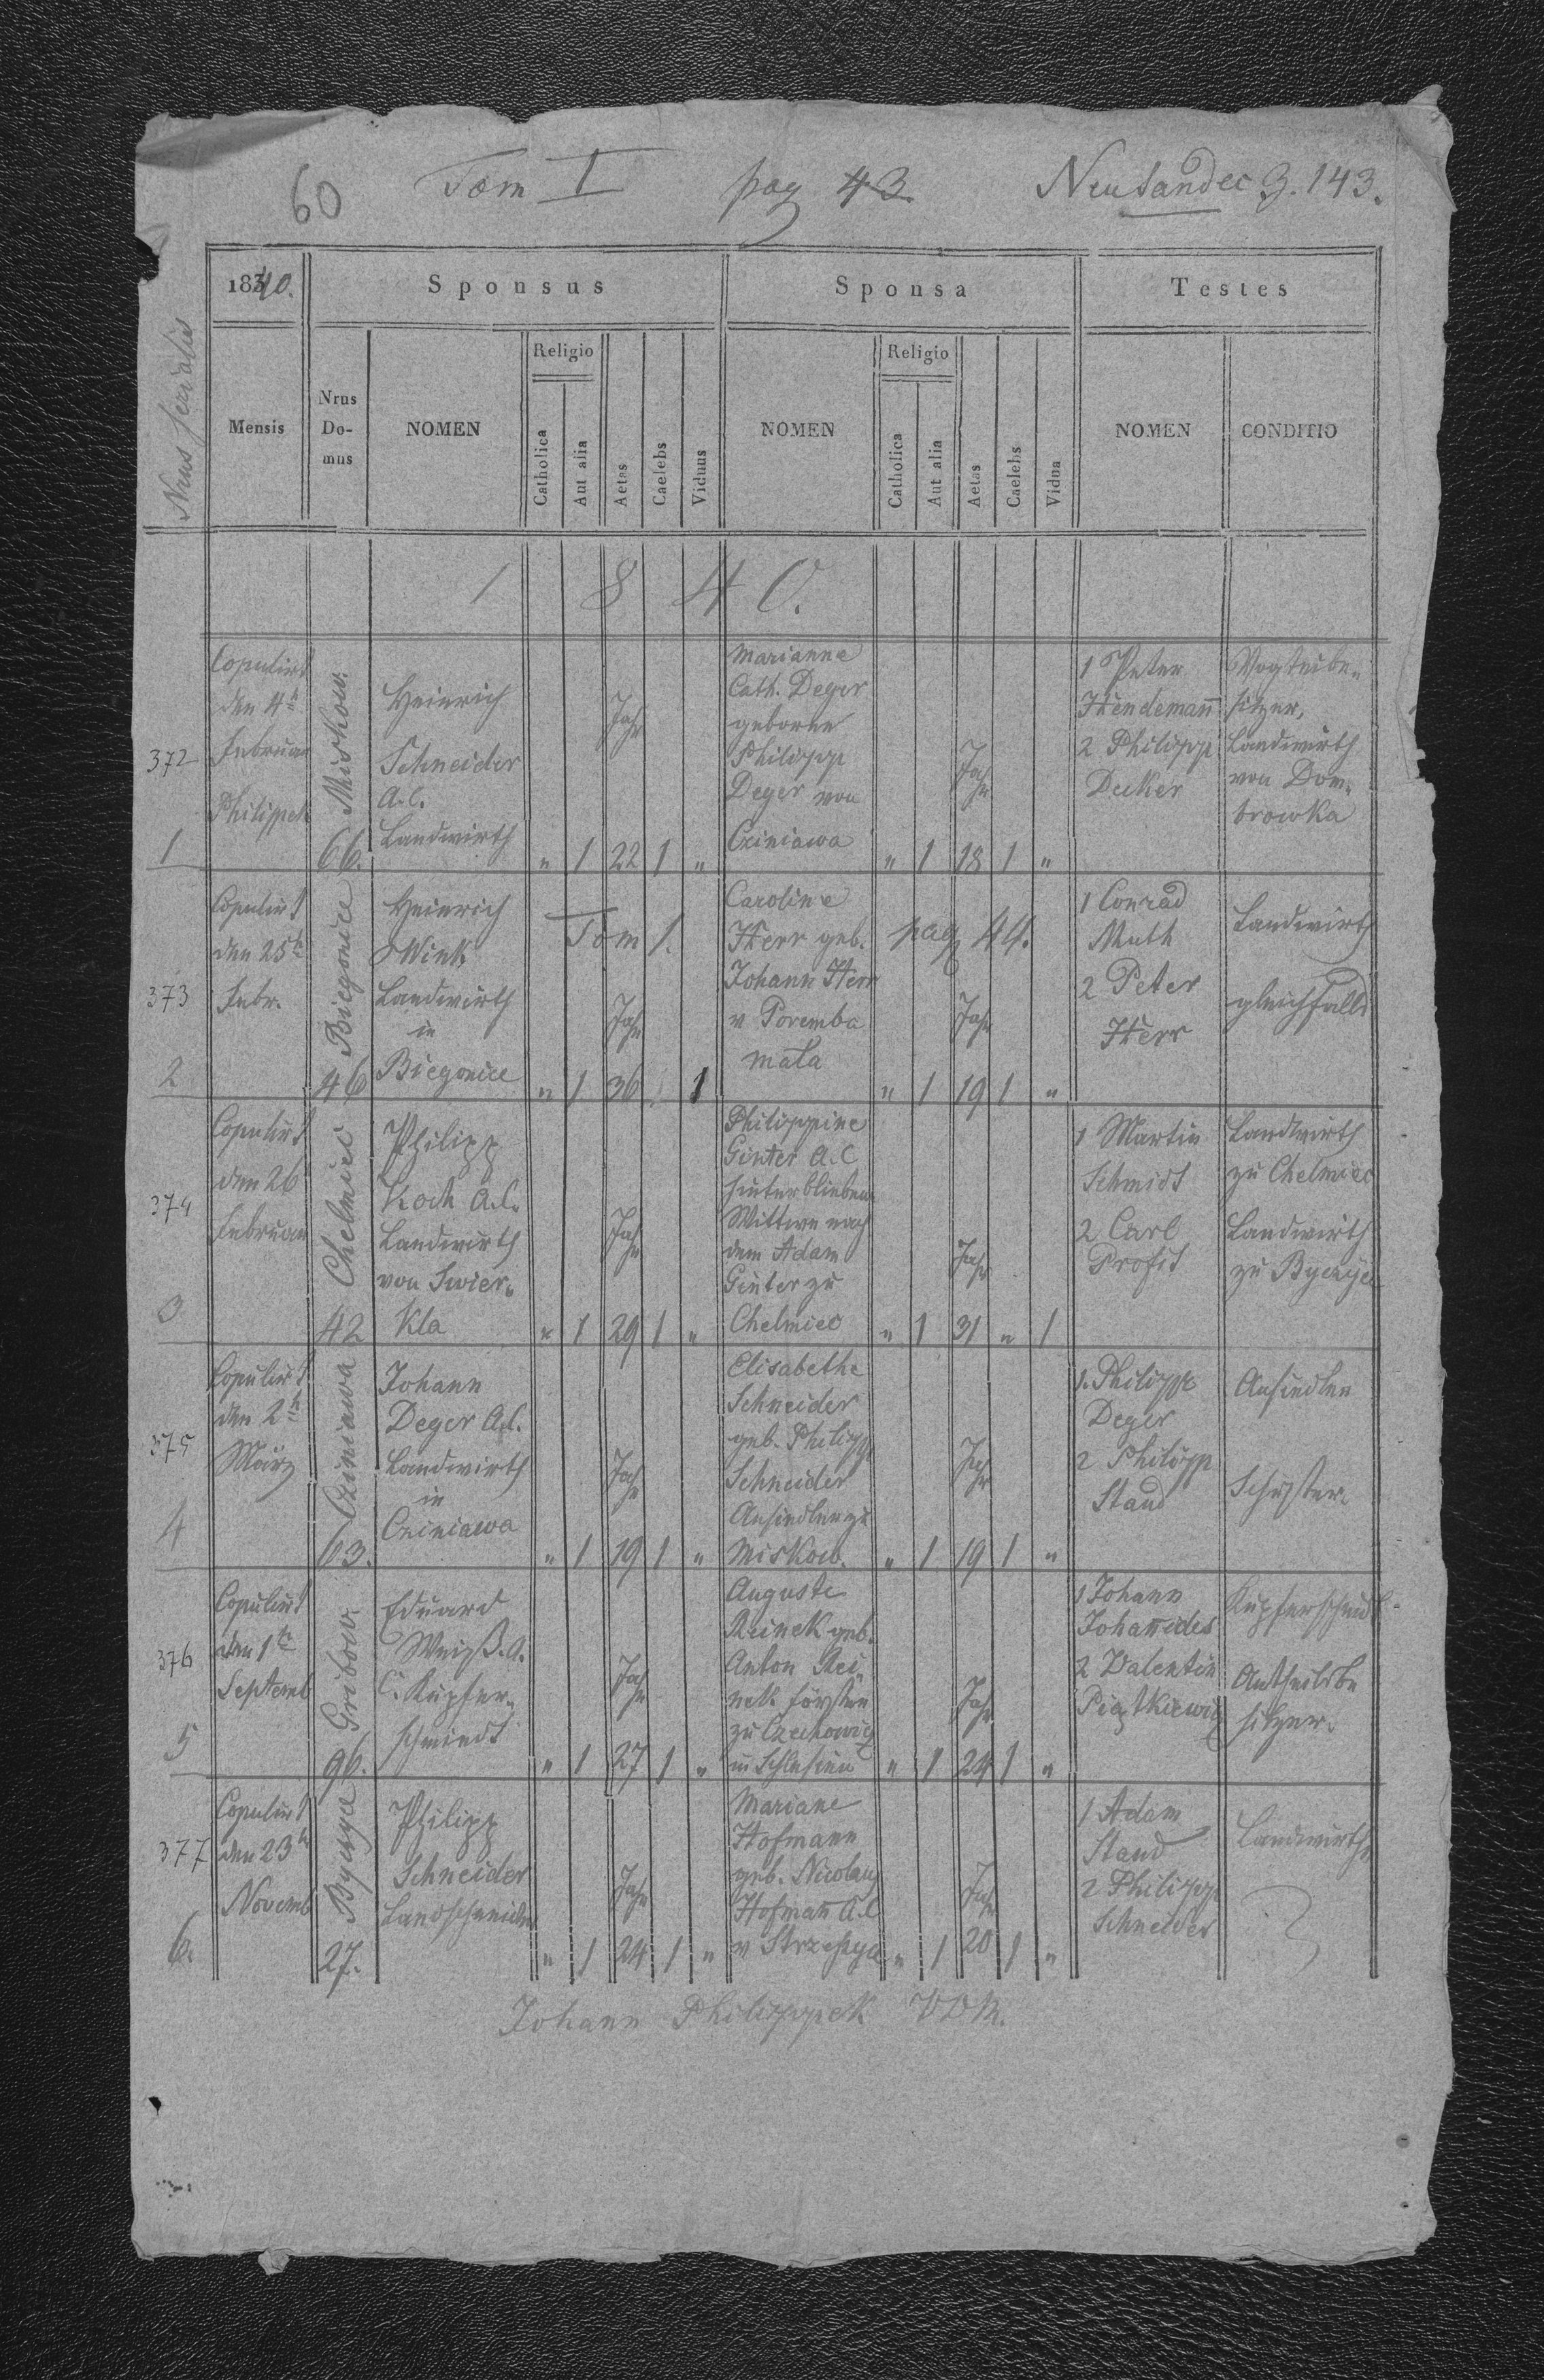 60 Tom I pag 43. Neusandec 3. 143.
Nrus serialis
1840. Sponsus Sponsa Testes
Mensis Nrus Do- mus NOMEN Religio Catholica Aut alia Aetas Caelebs Viduus NOMEN Religio Catholica Aut alia Aetas Caelebs Vidua NOMEN CONDITIO
1 8 4 0.
372
1
Copulirt
den 4t
Februar
Philippek
Miskow.
66.
Heinrich
Schneider
A.C.
Landwirth
" 1 22 Jahr 1 "
Marianna
Cath. Deger
geborne
Philipp
Deger von
Cziniawa
" 1 18 Jahr 1 "
1 Peter
Hendemann
2 Philipp
Decker
Vogteibe-
sitzer,
Landwirth
von Dom-
browka
373
2
Copulirt
den 25t
Febr.
Biegonice
46
Heinrich
Wink
Landwirth
in
Biegonice
Tom 1. pag 44.
" 1 36 Jahr 1
Caroline
Herr geb.
Johann Herr
v Poremba
mała
" 1 19 Jahr 1 "
1 Conrad
Muth
2 Peter
Herr
Landwirth
gleichfalls
374
3
Copulirt
den 26
Februar
Chelmiec
42
Philipp
Koch A.C.
Landwirth
von Swier-
kla
" 1 29 Jahr 1 "
Philippine
Ginter A.C
hinterbliebene
Wittwe nach
dem Adam
Ginter zu
Chelmiec
" 1 31 Jahr " 1
1 Martin
Schmidt
2 Carl
Profit
Landwirth
zu Chelmiec
Landwirth
zu Byczyce
375
4
Copulirt
den 2t
März
Cziniawa
63.
Johann
Deger A.C.
Landwirth
in
Cziniawa
" 1 19 Jahr 1 "
Elisabetha
Schneider
geb. Philipp
Schneider
Ansiedler zu
Miskow.
" 1 19 Jahr 1 "
1. Philipp
Deger
2 Philipp
Stand
Ansiedler
Schuster.
376
5
Copulirt
den 1t
Septemb
Gribow.
96.
Eduard
Weiß. A.
C. Kupfer-
schmiedt
" 1 27 Jahr 1 "
Auguste
Reinek geb.
Anton Rei-
nek förster
zu Czechowitz
in Schlesien
" 1 24 Jahr 1 "
1 Johann
Johannides
2 Valentin
Piątkiewicz
Kupferschmidt
Antheilsbe
sitzer.
377
6.
Copulirt
den 23t
Novemb
Byczyce
27.
Philipp
Schneider
Landschneider
" 1 24 Jahr 1 "
Mariane
Hofmann
geb. Nicolaus
Hofmann A.C
v Strzeszyce
" 1 20 Jahr 1 "
1 Adam
Stand
2 Philipp
Schneider
Landwirthe
Johann Philippek VDM.